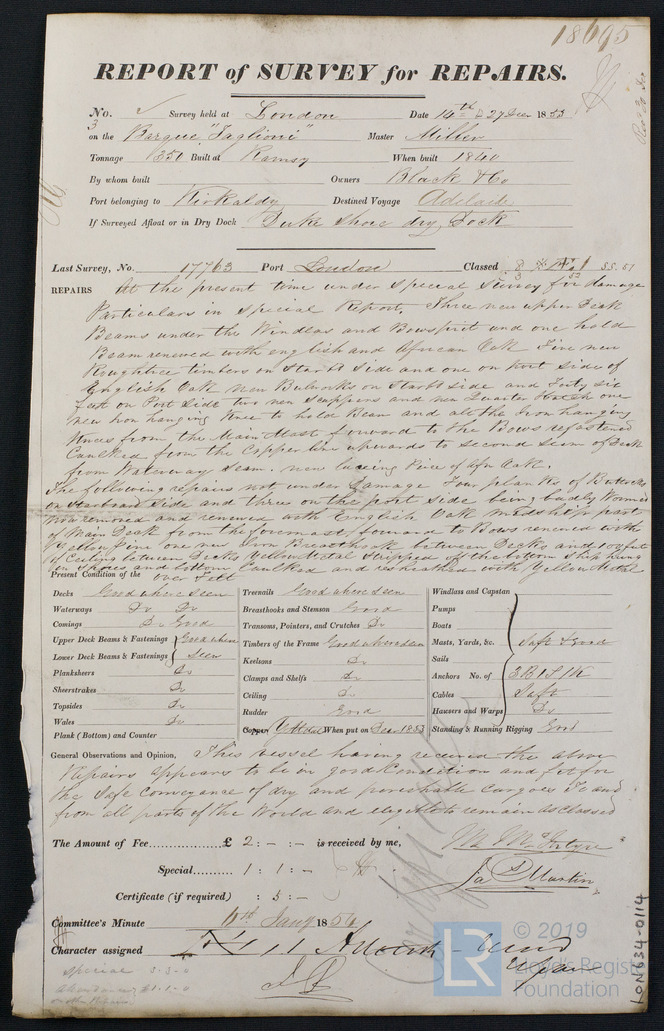 18695
REPORT of SURVEY for REPAIRS.
No. Survey held at London Date 14th & 27 Decr 1853
3 on the Barque "Taglioni" Master Miller
Tonnage 350 Built at Ramsy When built 1840
By whom built Owners Black & Co
Port belonging to Kirkaldy Destined Voyage Adelaide
If Surveyed Afloat or in Dry Dock Duke Shore dry Dock
Last Survey, No. 17763 Port London Classed
REPAIRS At the present time under special survey for damage
Particulars in Special Report. Three new upper Deck
Beams under the Windlas and Bowsprit and one hold
Beam renewed with english and African Oak Five new
Roughtree timbers on Starbd Side and one on Port side of
English Oak new Bulwarks on Starbd side and Forty six
feet on Port Side two new Scuppers and new Quarter one
new Iron hanging Knee to hold Beam and all the Iron hanging
Knees from the Main Mast forward to the Bows refastened
Caulked from the Copper line upwards to second seam of Deck
from Waterway seam. new Piece of Afn Oak.
The following repairs not under Damage Four planks of Buttocks
on Starboard Side and three on the port side being badly Wormed
now removed and renewed with English Oak midship part
of Main Deck from the foremast forward to Bows renewed with
Yellow Pine one new Iron Breasthook between Decks and
of Ceiling between Decks, Yellow Metal Stripped off the bottom Ship hung
in Shores and bottom Caulked and resheathed with Yellow Metal
over Felt
Present Condition of the
Decks Good where seen Treenails Good where seen Windlass and Capstan
Waterways Do Do Breasthooks and Stemson Good Pumps
Comings Do Good Transoms, Pointers, and Crutches Do Boats
Upper Deck Beams & Fastenings Good where Timbers of the Frame Good where seen Masts, Yards, &c. Safe & good
Lower Deck Beams & Fastenings seen Keelsons Do Sails
Planksheers Do Clamps and Shelfs Do Anchors No. of 3B 1S 1K
Sheerstrakes Do Ceiling Do Cables Safe
Topsides Do Rudder Good Hawsers and Warps Do
Wales Do Copper Y Metal When put on Decr 1853 Standing & Running Rigging Good
Plank (Bottom) and Counter
General Observations and Opinion, This vessel having received the above
Repairs appears to be in good Condition and fit for
the safe Conveyance of dry and perishable Cargoes to and
from all parts of the World and eligible to remain as Classed
The Amount of Fee £ 2: -: - is received by me,
Special 1: 1: -
Jas Martin
Certificate (if required) : 5: -
Committee's Minute 4th Jany 1854
Character assigned
special 3.3.0
LON634-0114
LR © 2019
Lloyd's Register
Foundation